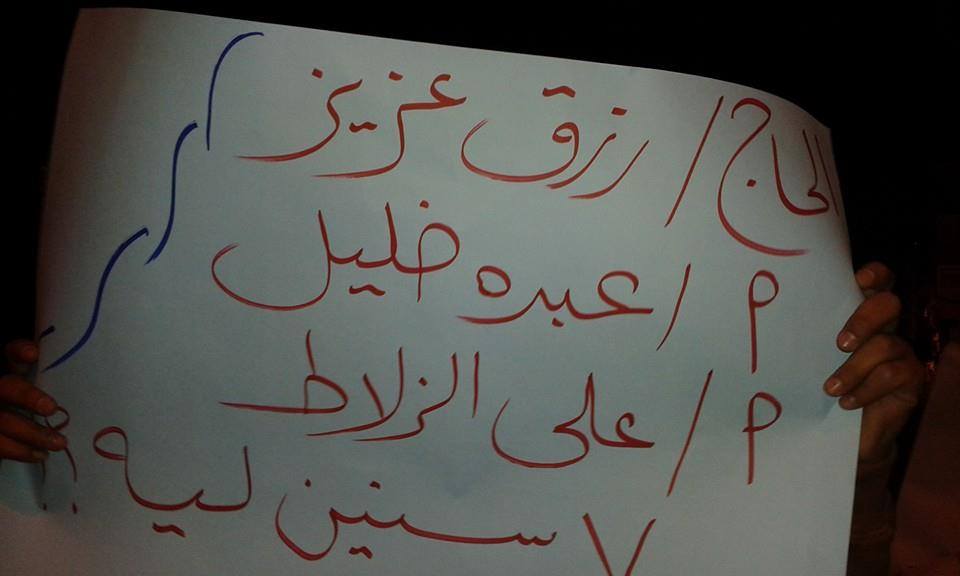 الحاج / رزق عزيز
م / عبده خليل
م / على الزلاط
٧ سنين ليه ؟؟